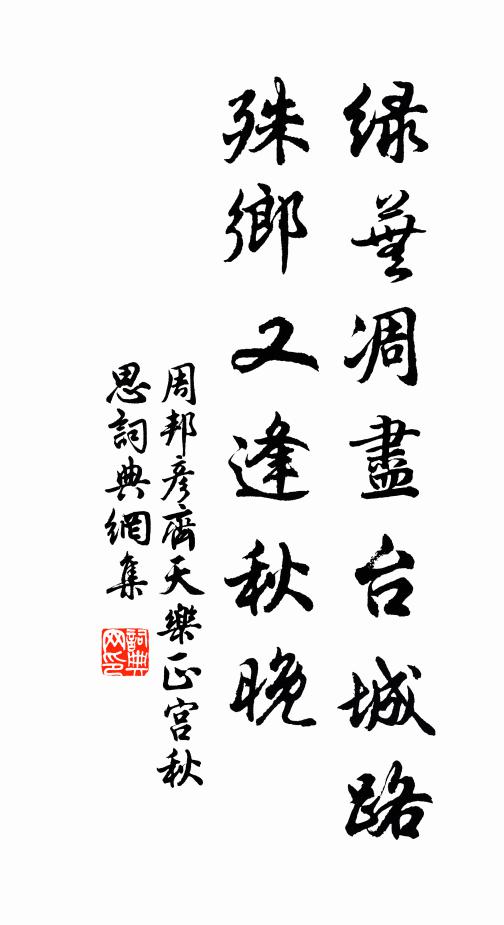 绿蕪凋盡台城路
殊鄉又逢秋晚
周邦彦齊天樂正宫秋
思詞典網集
詞典网印